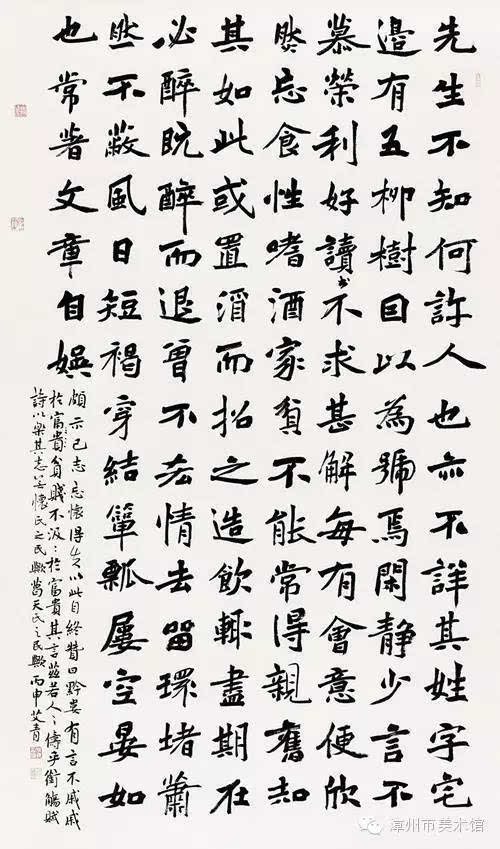 先生不知何許人也亦不詳其姓字宅
邊有五柳樹因以為號焉閑静少言不
慕榮利好讀書不求甚解每有會意便欣
然忘食性嗜酒家貧不能常得親舊知
其如此或置酒而招之造飲輒盡期在
必醉既醉而退曾不吝情去留環堵蕭
然不蔽風日短褐穿結簞瓢屢空晏如
也常著文章自娛
頗示己志忘懷得失以此自終贊曰黔婁有言不戚戚
於富貴貧賤不汲〻於富貴其言茲若人〻儔乎銜觴賦
詩以樂其志無懷氏之民歟葛天氏之民歟丙申艾青
漳州市美术馆